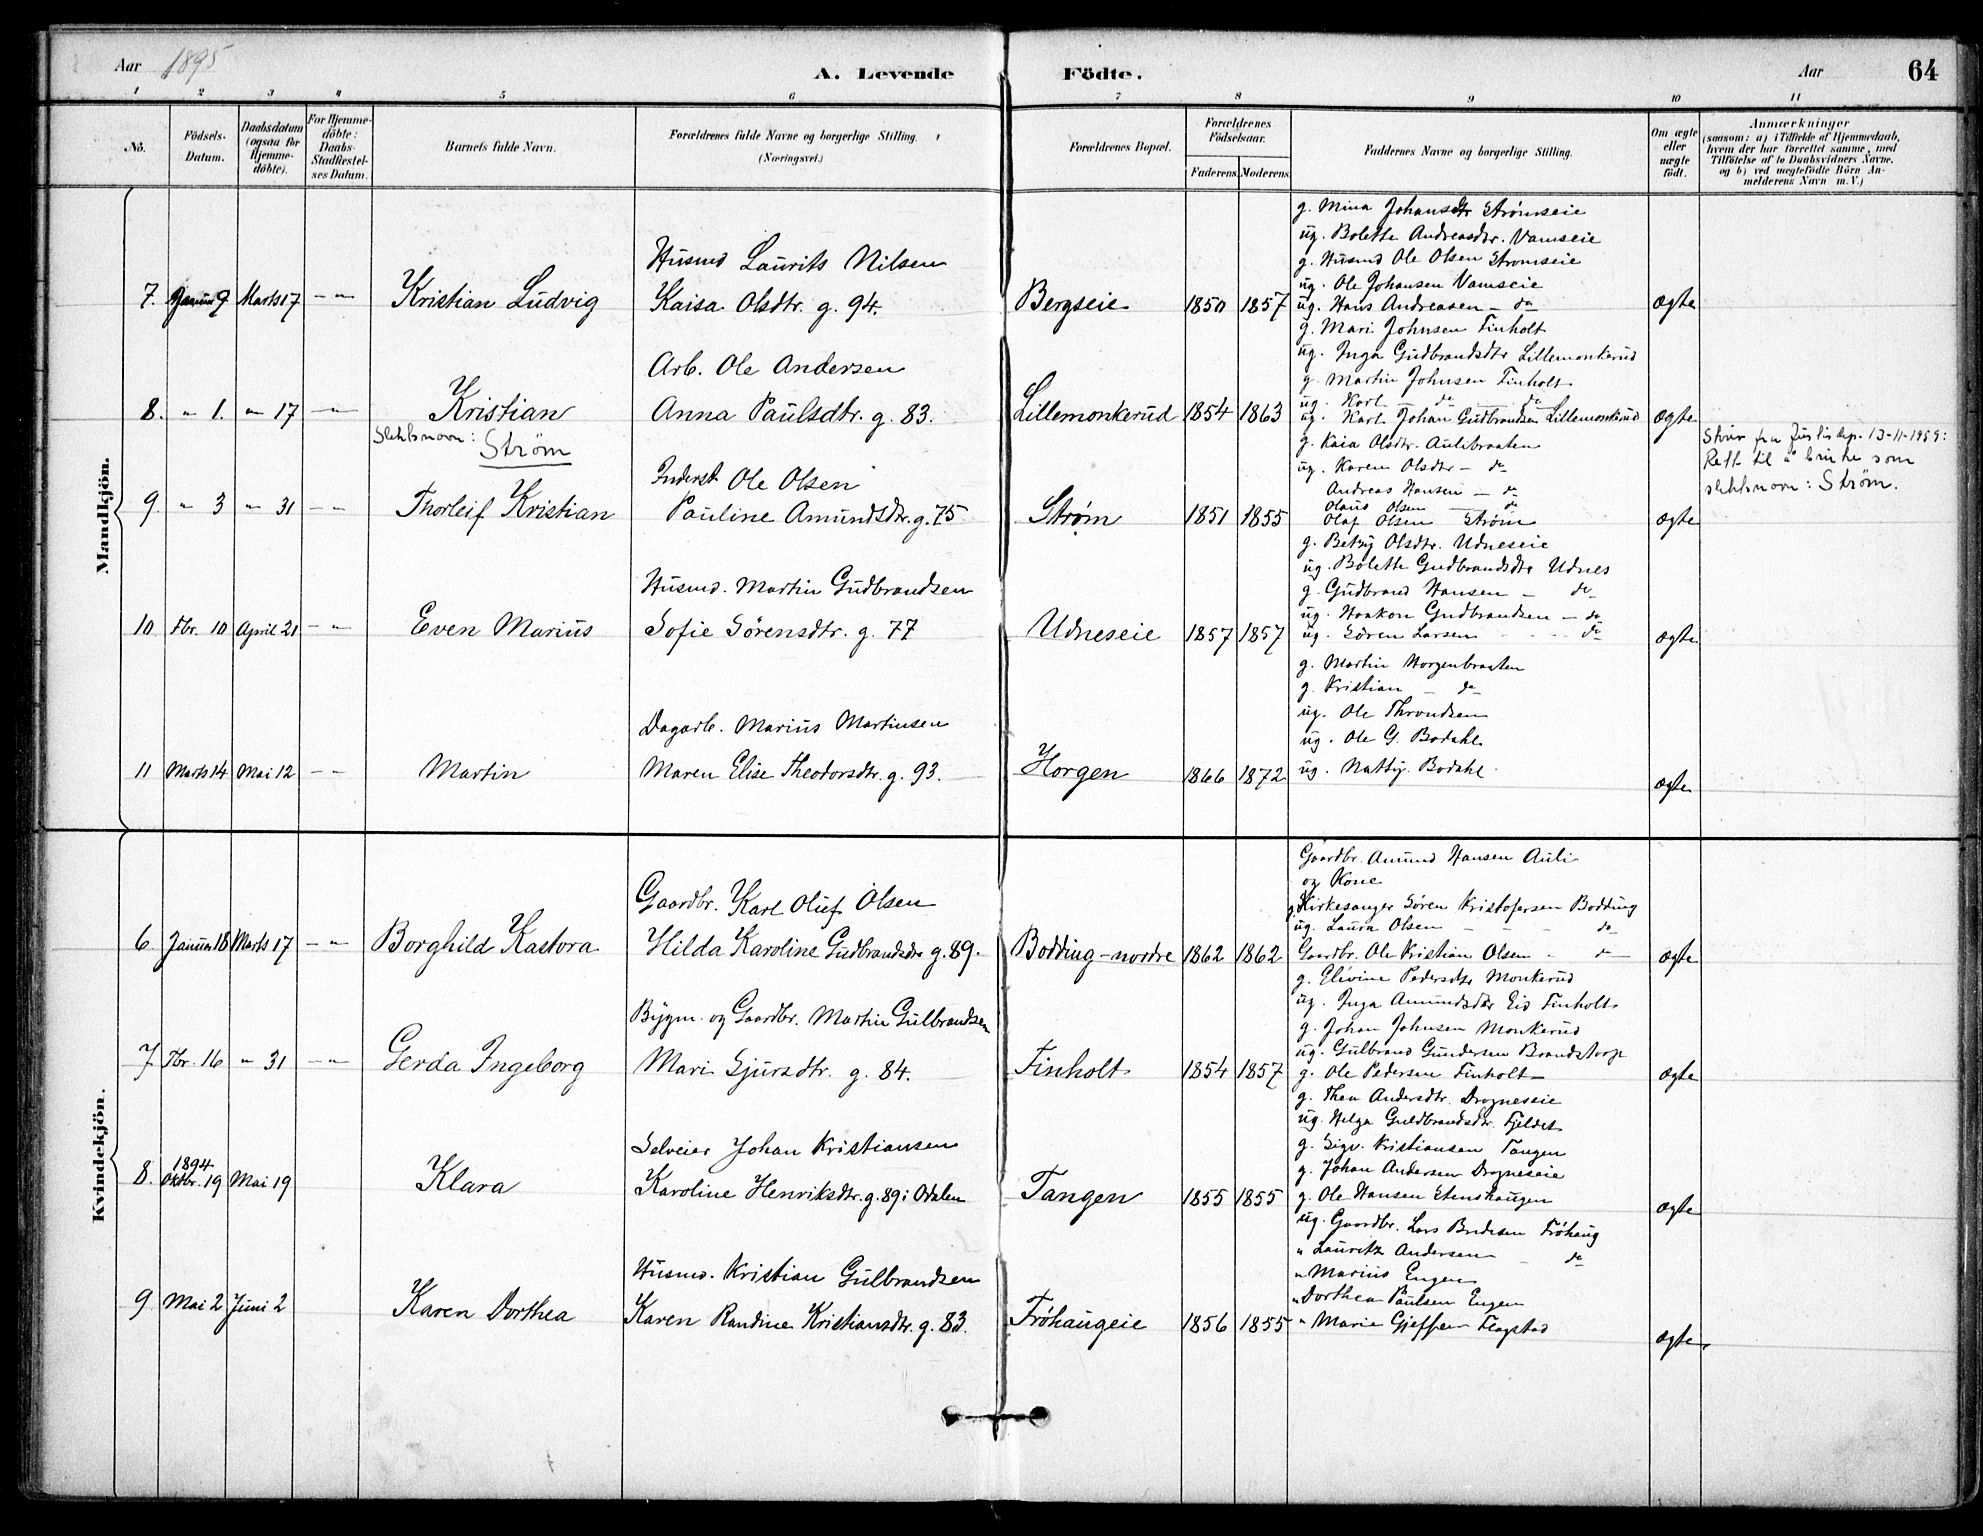 Aar 1895
A. Levende Födte.
Aar 64
1 2 3 4 5 6 7 8 9 10 11
No.
Födsels-
Datum.
Daabsdatum
(ogsaa for
Hjemme-
döbte).
For Hjemme-
döbte:
Daabs-
Stadfæstel-
ses Datum.
Barnets fulde Navn.
Forældrenes fulde Navne og borgerlige Stilling.
(Næringsvei.)
Forældrenes Bopæl.
Forældrenes
Födselsaar.
Faderens. Moderens.
Faddernes Navne og borgerlige Stilling.
Om ægte
eller
uægte
födt.
Anmærkninger
(saasom: a) i Tilfælde af Hjemmedaab,
hvem der har forrettet samme, med
Tilföielse af to Daabsvidners Navne,
og b) ved uægtefödte Börn An-
melderens Navn m. V.)
Mandkjön.
7. Januar 9 Marts 17 - " -
Kristian Ludvig
Husmd Laurits Nilsen
Kaisa Olsdtr. g. 94.
Bergseie 1850 1857
g. Mina Johansdtr Strømseie
ug. Bolette Andreasdtr. Vamseie
g. Husmd Ole Olsen Strømseie
ug. Ole Johansen Vamseie
ug. Hans Andreasen - do
ægte
8. " 1. " 17 - " -
Kristian
Arb. Ole Andersen
Anna Paulsdtr. g. 83.
Lillemonkerud 1854 1863
g. Mari Johnsen Finholt
ug. Inga Gudbrandsdtr Lillemonkerud
g. Martin Johnsen Finholt
ug. Karl do do
ug. Karl Johan Gudbrandsen Lillemonkerud
ægte
slektsnavn:
Strøm
9. " 3 " 31 - " -
Thorleif Kristian
Inderst Ole Olsen
Pauline Amundsdtr. g. 75
Strøm 1851 1855
g. Kaia Olsdtr. Aulibraaten
ug. Karen Olsdtr - do
Andreas Hansen - do
Olaus Olsen do
Olaf Olsen Strøm
ægte
Skriv fra Justisdep. 13-11-1959:
Rett til å bruke som
slektsnavn: Strøm.
10. Fbr. 10 April 21 - " -
Even Marius
Husmd. Martin Gudbrandsen
Sofie Sørensdtr. g. 77
Udneseie 1857 1857
g. Betsy Olsdtr. Udneseie
ug. Bolette Gudbrandsdtr Udnes
g. Gudbrand Hansen - do
ug. Haakon Gudbrandsen - do
ug. Søren Larsen do
ægte
11 Marts 14 Mai 12 - " -
Martin
Dagarb. Marius Martinsen
Maren Elise Theodorsdtr. g. 93.
Horgen 1866 1872
g. Martin Horgenbraaten
g. Kristian - do
ug. Ole Throndsen
ug. Ole G. Bodahl
ug. Bodahl
ægte
Kvindekjön.
6. Januar 18 Marts 17 - " -
Borghild Kastora
Gaardbr. Karl Oluf Olsen
Hilda Karoline Gudbrandsdtr g. 89.
Bodding-nordre 1862 1862
Gaardbr. Amund Hansen Auli
og Kone
g. Kirkesanger Søren Kristofersen Bodding
ug. Laura Olsen do
Gaardbr. Ole Kristian Olsen do
ægte
7. Fbr. 16 " 31 - " -
Gerda Ingeborg
Bygm. og Gaardbr. Martin Gulbrandsen
Mari Sjursdtr. g. 84.
Finholt 1854 1857
g. Elevine Pedersdtr Monkerud
ug. Inga Amundsdtr Eid Finholt
g. Johan Johnsen Monkerud
ug. Gulbrand Gundersen Brandstorp
g. Ole Pedersen Finholt
ægte
8. 1894
Oktbr. 19 Mai 19
Klara
Selveier Johan Kristiansen
Karoline Henriksdtr. g. 89 i Odalen
Tangen 1855 1855
g. Thea Andersdtr. Drogneseie
ug. Helga Guldbrandsdtr. Fjeldet
g. Sigv. Kristiansen Tangen
g. Johan Andersen Drogneseie
g. Ole Hansen Stenshaugen
ægte
9 Mai 2 Juni 2
Karen Dorthea
Husmd. Kristian Gulbrandsen
Karen Randine Kristiansdtr. g. 83.
Frøhaugeie 1856 1855
ug. Gaardbr. Lars Bredesen Frøhaug
" Lauritz Andersen - do
" Marius Engen
" Dorthea Paulsen Engen
" Marie Flagstad
ægte.